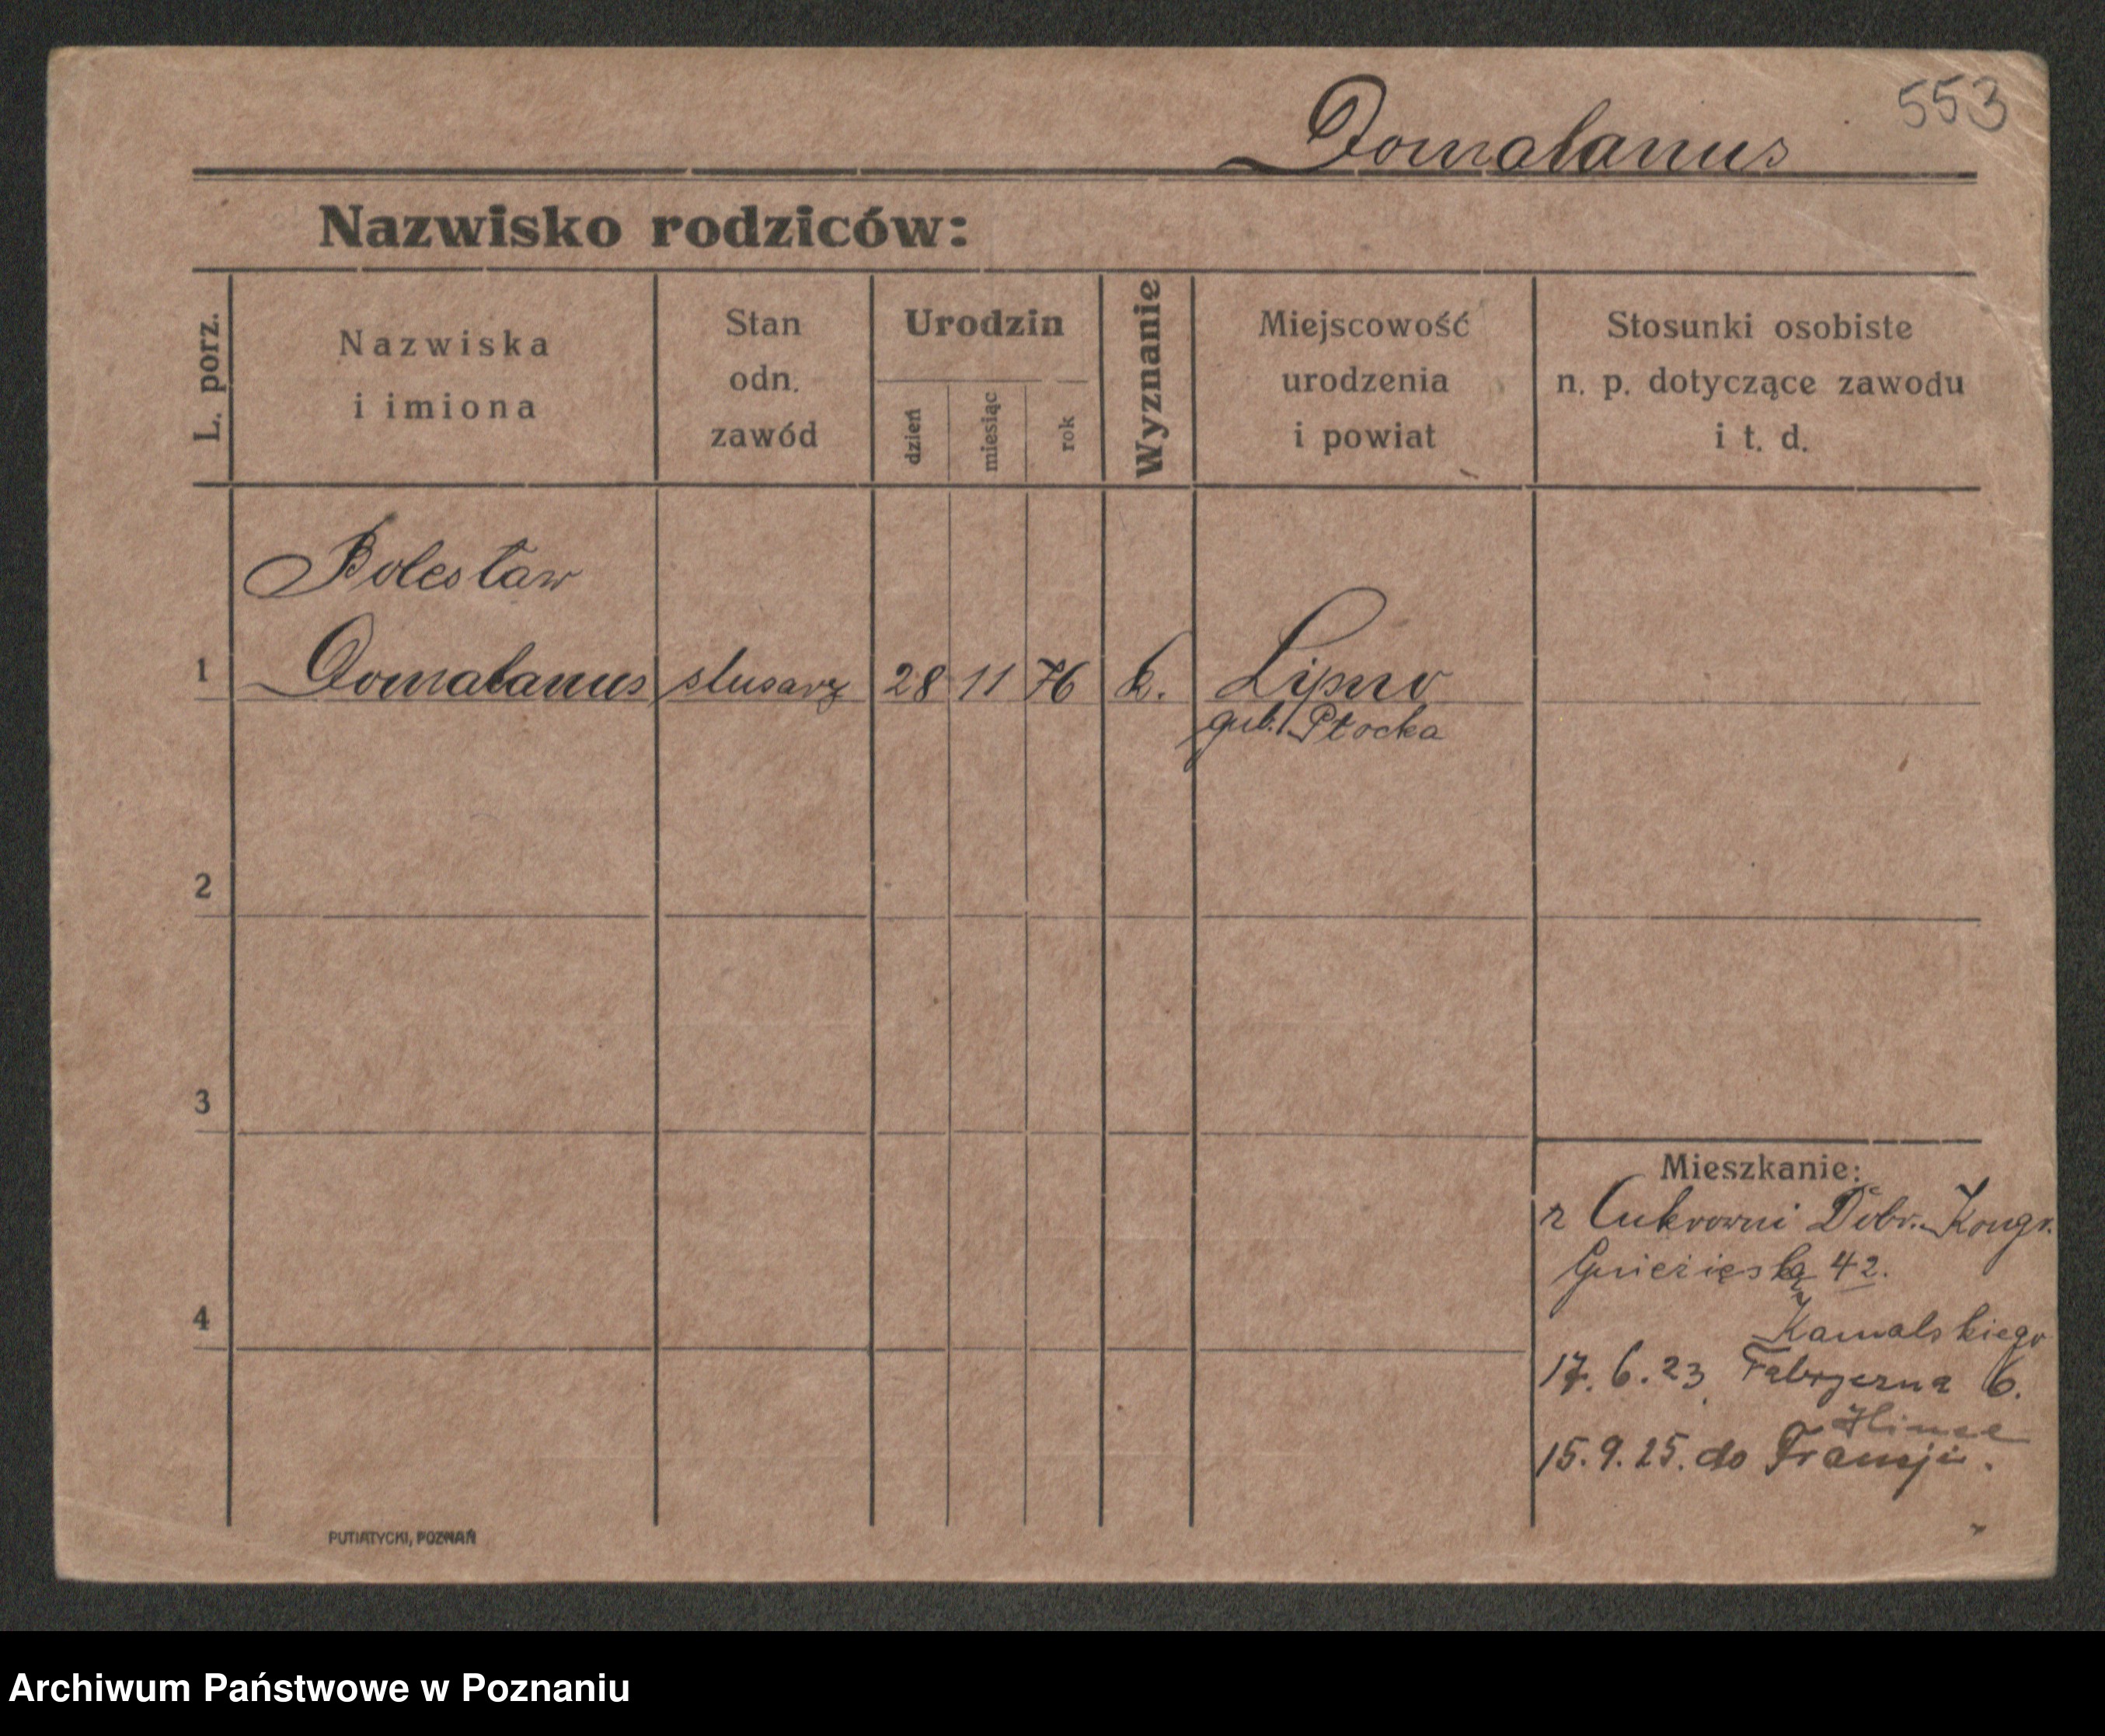 553
Domalanus
Nazwisko rodziców:
L. porz.
Nazwiska
i imiona
Stan
odn.
zawód
Urodzin
dzień
miesiąc
rok
Wyznanie
Miejscowość
urodzenia
i powiat
Stosunki osobiste
n. p. dotyczące zawodu
i t. d.
Bolesław
1 Domalanus slusarz 28 11 76 k. Lipno
gub. Płocka
2
3
4
Mieszkanie:
z Cukrowni Dobr. Kongr.
42.
Kamalskiego
17.6.23 Fabryczna 6.
15.9.25. do Francji.
PUTIATYCKI, POZNAŃ
Archiwum Państwowe w Poznaniu